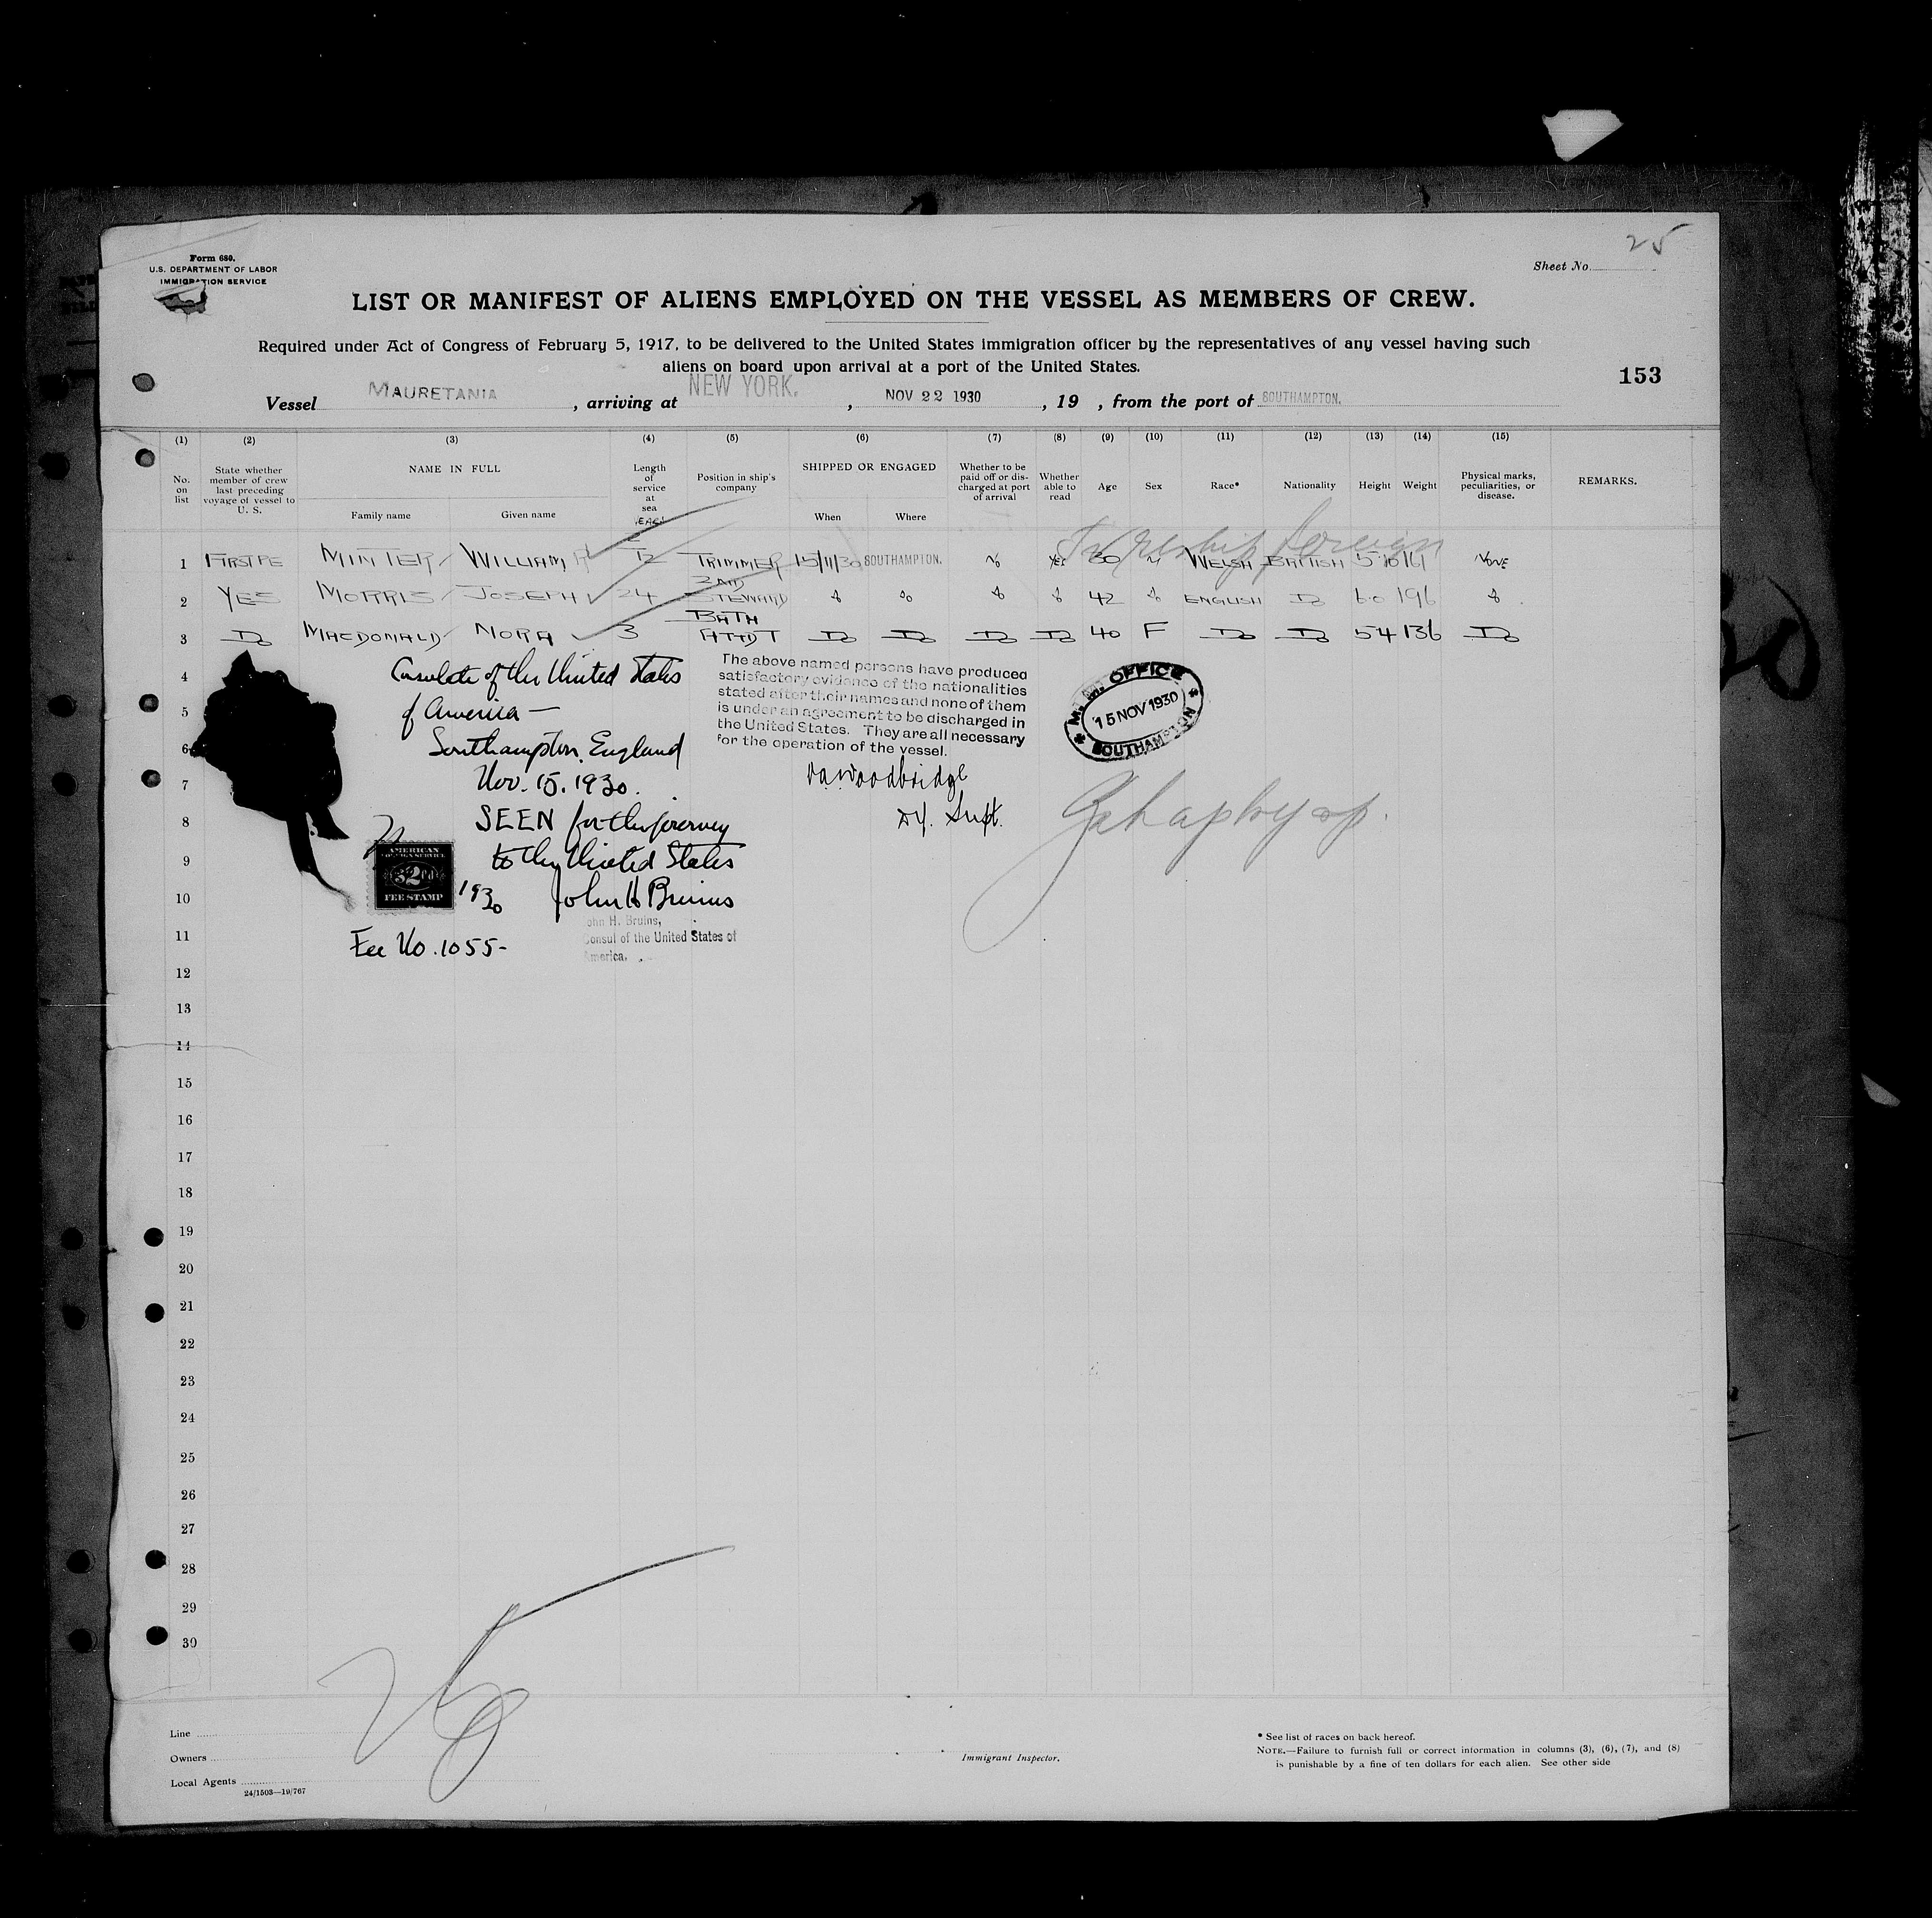 25
Form 680.
U.S. DEPARTMENT OF LABOR
IMMIGRATION SERVICE
Sheet No.
LIST OR MANIFEST OF ALIENS EMPLOYED ON THE VESSEL AS MEMBERS OF CREW.
Required under Act of Congress of February 5, 1917, to be delivered to the United States immigration officer by the representatives of any vessel having such
aliens on board upon arrival at a port of the United States.
153
Vessel MAURETANIA, arriving at NEW YORK., NOV 22 1930, 19 , from the port of SOUTHAMPTON.
(1) (2) (3) (4) (5) (6) (7) (8) (9) (10) (11) (12) (13) (14) (15)
No. on list State whether member of crew last preceding voyage of vessel to U. S. NAME IN FULL Family name Given name Length of service at sea Position in ship's company SHIPPED OR ENGAGED When Where Whether to be paid off or discharged at port of arrival Whether able to read Age Sex Race* Nationality Height Weight Physical marks, peculiarities, or disease. REMARKS.
1 MINTER WILLIAM TRIMMER 15/11/30 SOUTHAMPTON. No YES 30 M WELSH BRITISH 5 10 161 NONE
2 YES MORRIS JOSEPH 24 2ND STEWARD Do Do Do Do 42 Do ENGLISH Do 6.0 196 Do
3 Do MACDONALD NORA 3 BATH ATTDT Do Do Do Do 40 F Do Do 54 136 Do
4
5
6
7
8
9
10
11
12
13
14
15
16
17
18
19
20
21
22
23
24
25
26
27
28
29
30
Consulate of the United States
of America —
Southampton, England
Nov. 15. 1930.
SEEN for the journey
to the United States
John H Bruins
John H. Bruins,
Consul of the United States of
America.
AMERICAN
FOREIGN SERVICE
$2
FEE STAMP
1930
Fee No. 1055-
The above named persons have produced
satisfactory evidence of the nationalities
stated after their names and none of them
is under an agreement to be discharged in
the United States. They are all necessary
for the operation of the vessel.
Woodbridge
Dy. Supt.
M. M. OFFICE
15 NOV 1930
SOUTHAMPTON
Line
Owners
Local Agents
24/1503—19/767
Immigrant Inspector.
* See list of races on back hereof.
NOTE.—Failure to furnish full or correct information in columns (3), (6), (7), and (8)
is punishable by a fine of ten dollars for each alien. See other side